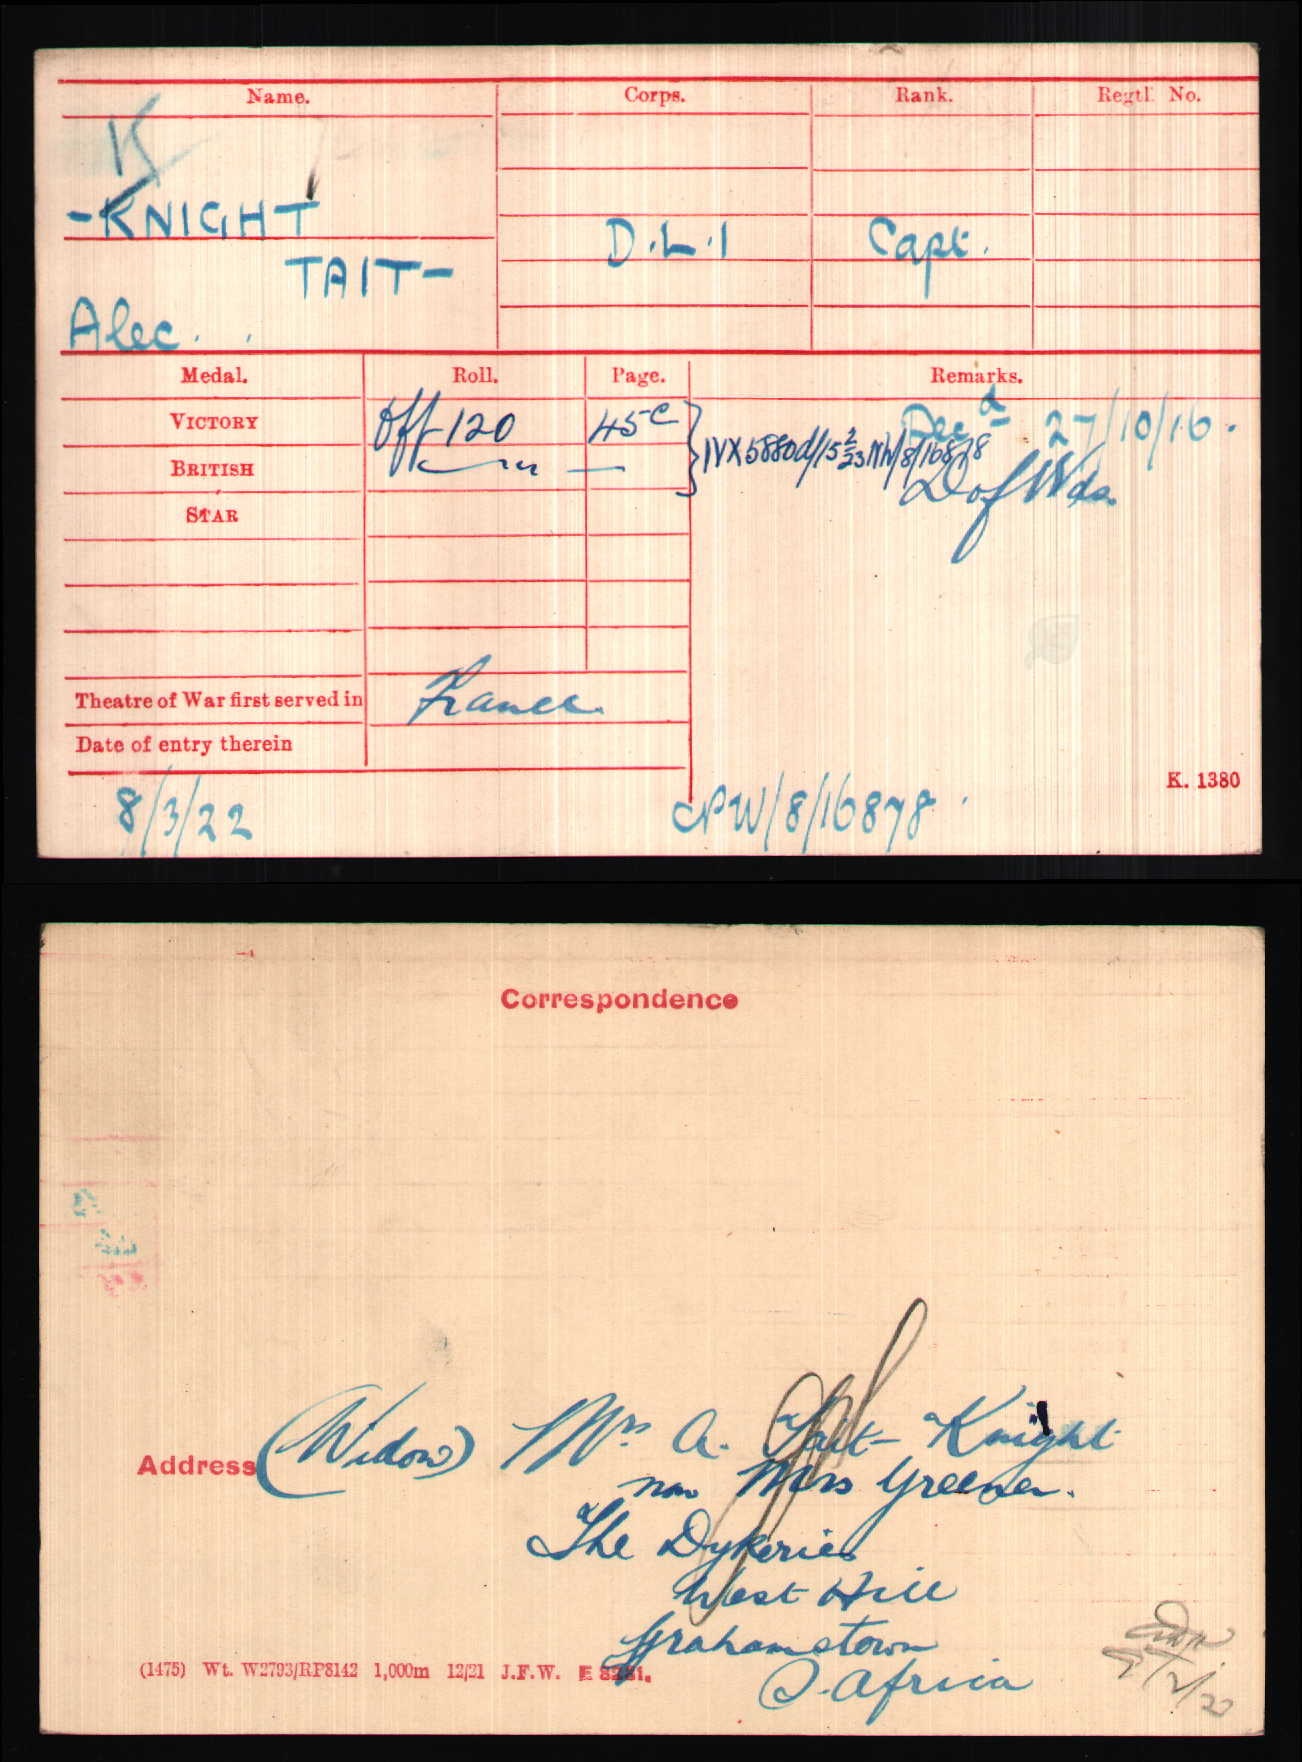 Name. Corps. Rank. Regtl. No.
K
-KNIGHT
TAIT-
Alec.
D.L.I
Capt.
Medal. Roll. Page. Remarks.
VICTORY Off 120 45c Dec d 27/10/16.
BRITISH IVX5880d/15 2/23 NW/8/16878
D of Wds.
STAR
Theatre of War first served in France.
Date of entry therein
K. 1380
8/3/22 NW/8/16878.
Correspondence
Address (Widow) Mrs A. Tait-Knight
now Mrs Greener.
The Dykeries
West Hill
Grahamstown
S. Africa
(1475) Wt. W2793/RP8142 1,000m 12/21 J.F.W.